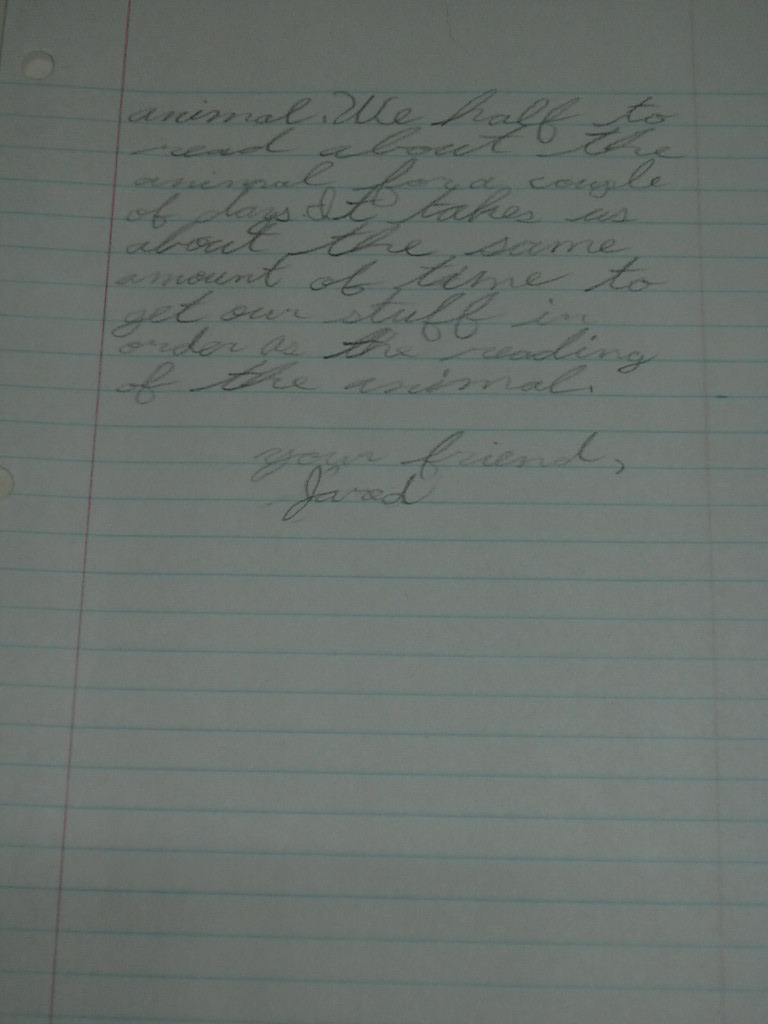 animal. We half to
read about the
animal for a couple
of days It takes us
about the same
amount of time to
get our stuff in
order as the reading
of the animal.
your friend,
Jared